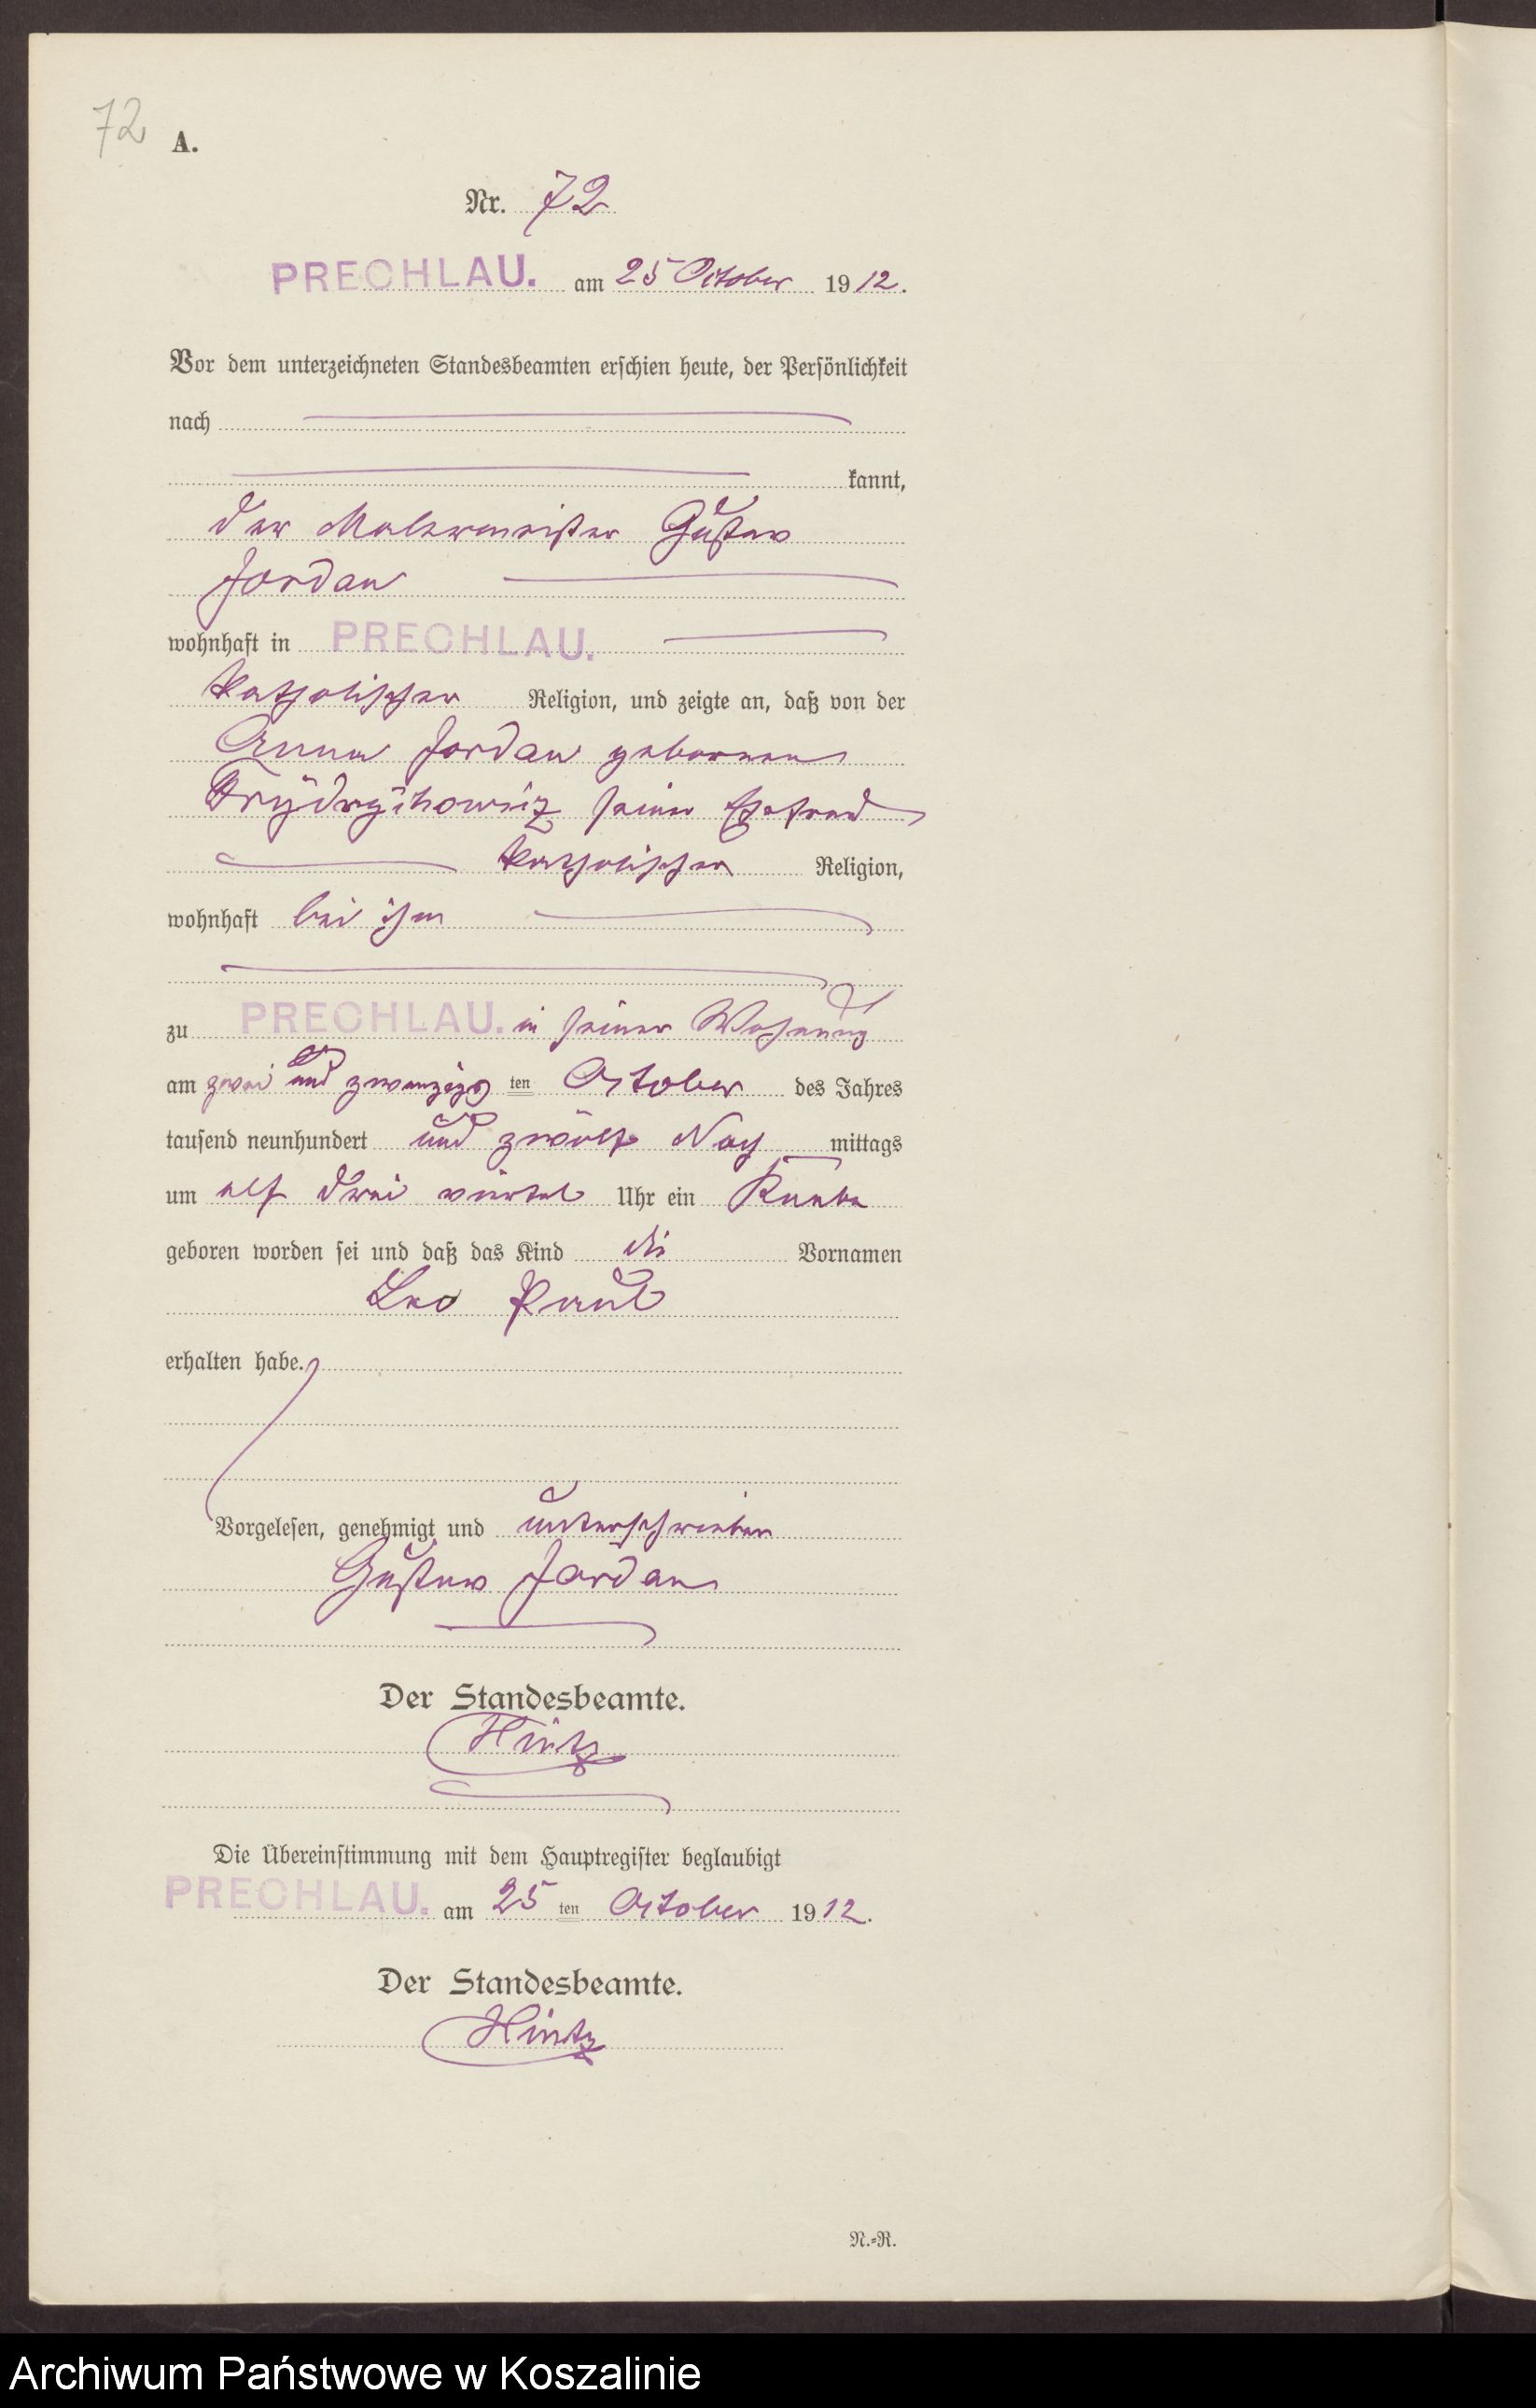 72
A.
Nr. 72
PRECHLAU. am 25 October 1912.
Vor dem unterzeichneten Standesbeamten erschien heute, der Persönlichkeit
nach
kannt,
der Malermeister Gustav
Jordan
wohnhaft in PRECHLAU.
katholischer Religion, und zeigte an, daß von der
Anna Jordan geborenen
seiner Ehefrau
katholischer Religion,
wohnhaft bei ihm
zu PRECHLAU. in seiner Wohnung
am zwei und zwanzigsten October des Jahres
tausend neunhundert und zwölf Nachmittags
um elf drei viertel Uhr ein Knabe
geboren worden sei und daß das Kind die Vornamen
Leo Paul
erhalten habe.
Vorgelesen, genehmigt und unterschrieben
Gustav Jordan
Der Standesbeamte.
Hintz
Die Übereinstimmung mit dem Hauptregister beglaubigt
PRECHLAU. am 25 ten October 1912.
Der Standesbeamte.
Hintz
N.=R.
Archiwum Państwowe w Koszalinie